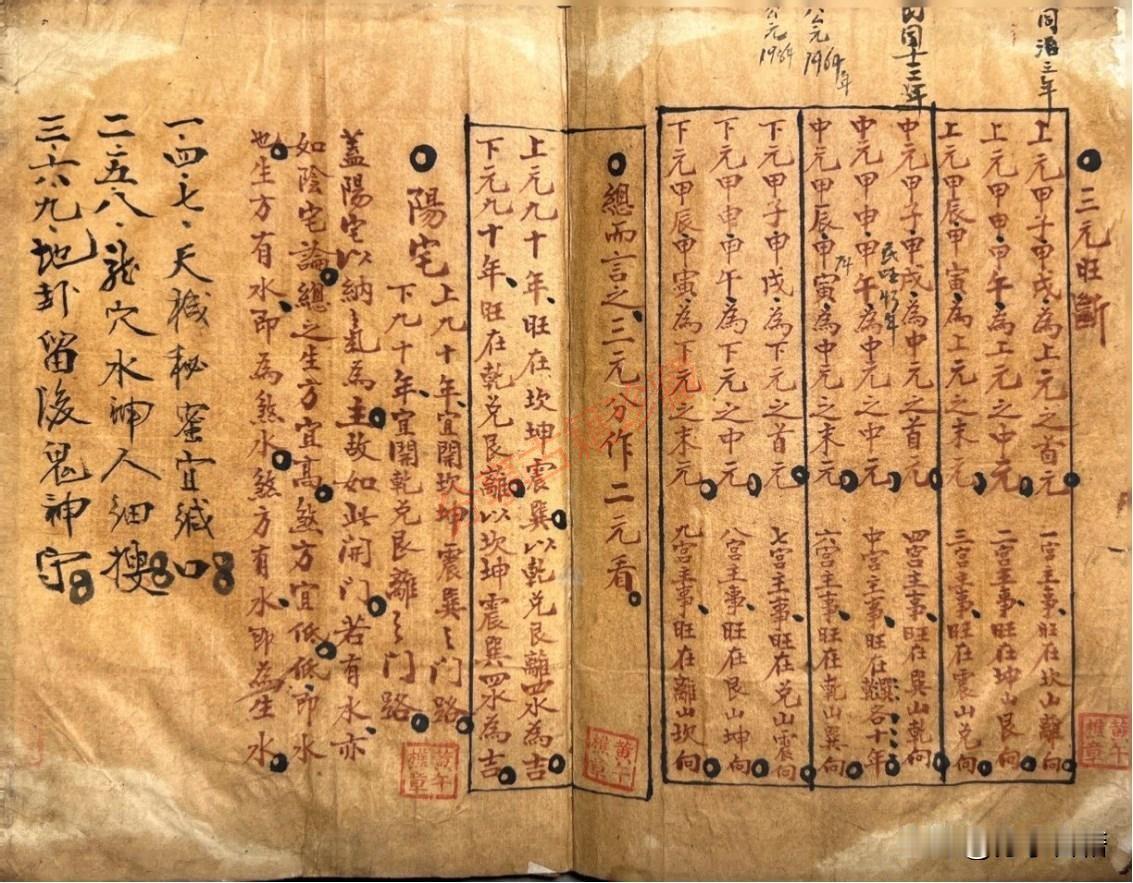 同治三年
民国十三年
公元1964年
公元1984
三元旺斷
上元甲子甲戌為上元之首元 一宮主事旺在坎山離向
上元甲申甲午為上元之中元 二宮主事旺在坤山艮向
上元甲辰甲寅為上元之末元 三宮主事旺在震山兌向
中元甲子甲戌為中元之首元 四宮主事旺在巽山乾向
中元甲申甲午為中元之中元 中宮主事旺在巽各十年
中元甲辰甲寅為中元之末元 六宮主事旺在乾山巽向
下元甲子甲戌為下元之首元 七宮主事旺在兌山震向
下元甲申甲午為下元之中元 八宮主事旺在艮山坤向
下元甲辰甲寅為下元之末元 九宮主事旺在離山坎向
總而言之三元分作二元看
上元九十年旺在坎坤震巽以乾兌艮離四水為吉
下元九十年旺在乾兌艮離以坎坤震巽四水為吉
陽宅
上九十年宜開坎坤震巽之門路
下九十年宜開乾兌艮離之門路
蓋陽宅以納氣為主故如此開門若有水亦
如陰宅論總之生方宜高煞方宜低低即水
也生方有水即為煞水煞方有水即為生水
一.四.七.天機秘密宜緘口
二.五.八.龍穴水神人细搜
三.六.九.地卦留後鬼神守